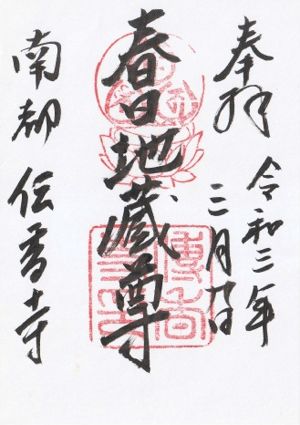 奉拝
令和三年
三月
春日地蔵尊
南都 伝香寺